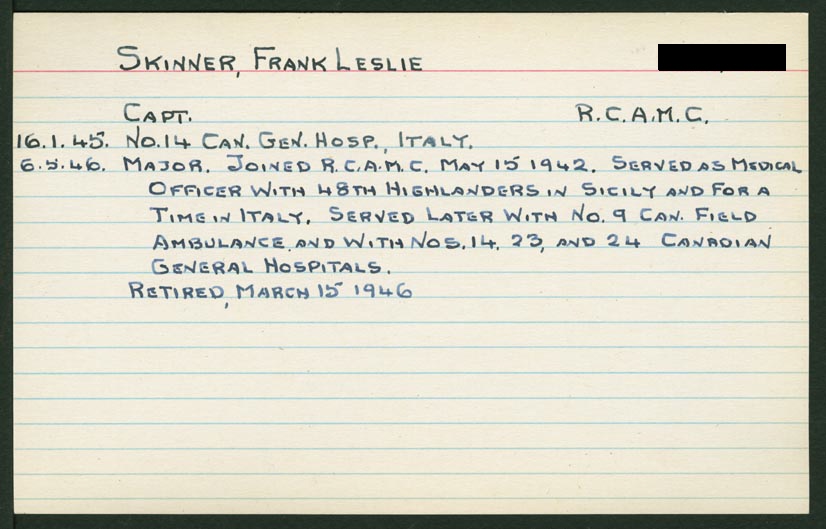 SKINNER, FRANK LESLIE
CAPT. R.C.A.M.C.
16.1.45. NO.14 CAN. GEN. HOSP., ITALY.
6.5.46. MAJOR. JOINED R.C.A.M.C. MAY 15 1942. SERVED AS MEDICAL
OFFICER WITH 48TH HIGHLANDERS IN SICILY AND FOR A
TIME IN ITALY. SERVED LATER WITH NO. 9 CAN. FIELD
AMBULANCE, AND WITH NOS. 14, 23, AND 24 CANADIAN
GENERAL HOSPITALS.
RETIRED, MARCH 15 1946